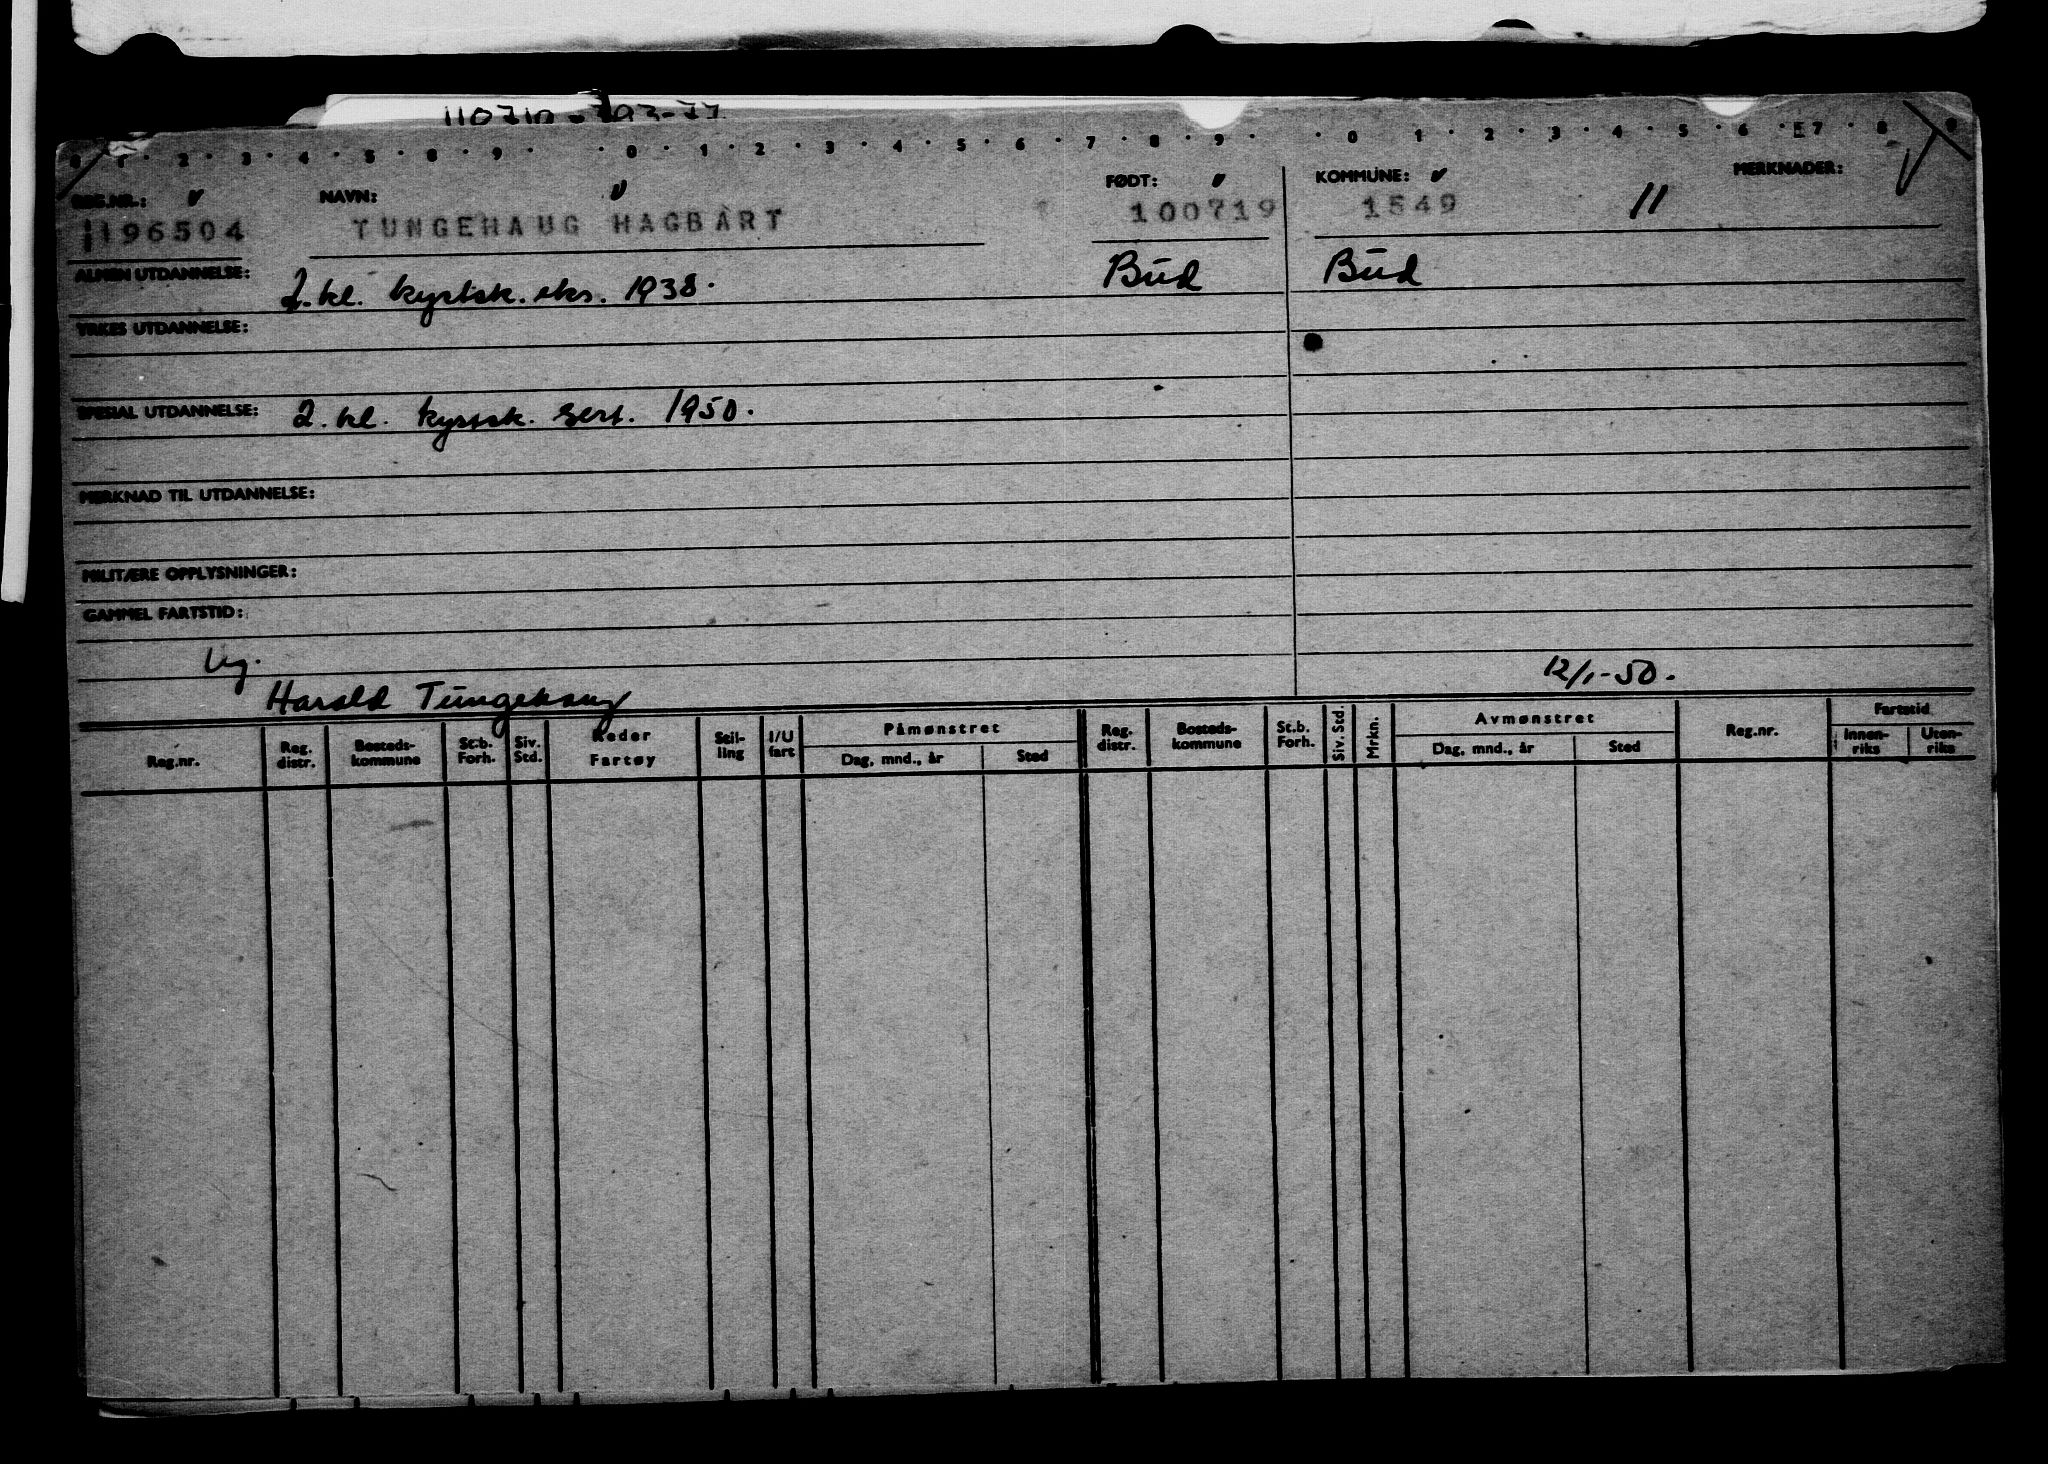 0 1 · 2 · 3 · 4 · 5 · 8 · 9 · · 0 · 1 · 2 · 3 · 4 · 5 · 6 · 7 · 8 · 9 · · 0 · 1 · 2 · 3 · 4 · 5 · 6 · 7 · 8 · 9
REG.NR.: NAVN: FØDT: KOMMUNE: MERKNADER:
196504 TUNGEHAUG HAGBART 100719 1549 11
ALMEN UTDANNELSE: 2. kl. kystsk. eks. 1938. Bud Bud
YRKES UTDANNELSE:
SPESIAL UTDANNELSE: 2. kl. kystsk. sert. 1950.
MERKNAD TIL UTDANNELSE:
MILITÆRE OPPLYSNINGER:
GAMMEL FARTSTID:
12/1-50.
Harald Tungehaug
Reg.nr. Reg. distr. Bosteds-kommune St.b. Forh. Siv. Std. Reder Fartøy Stil-ling I/U fart Påmønstret Dag, mnd., år Sted Reg. distr. Bosteds-kommune St.b. Forh. Siv. Std. Mrkn. Avmønstret Dag, mnd., år Sted Reg.nr. Fartstid Innen-riks Uten-riks